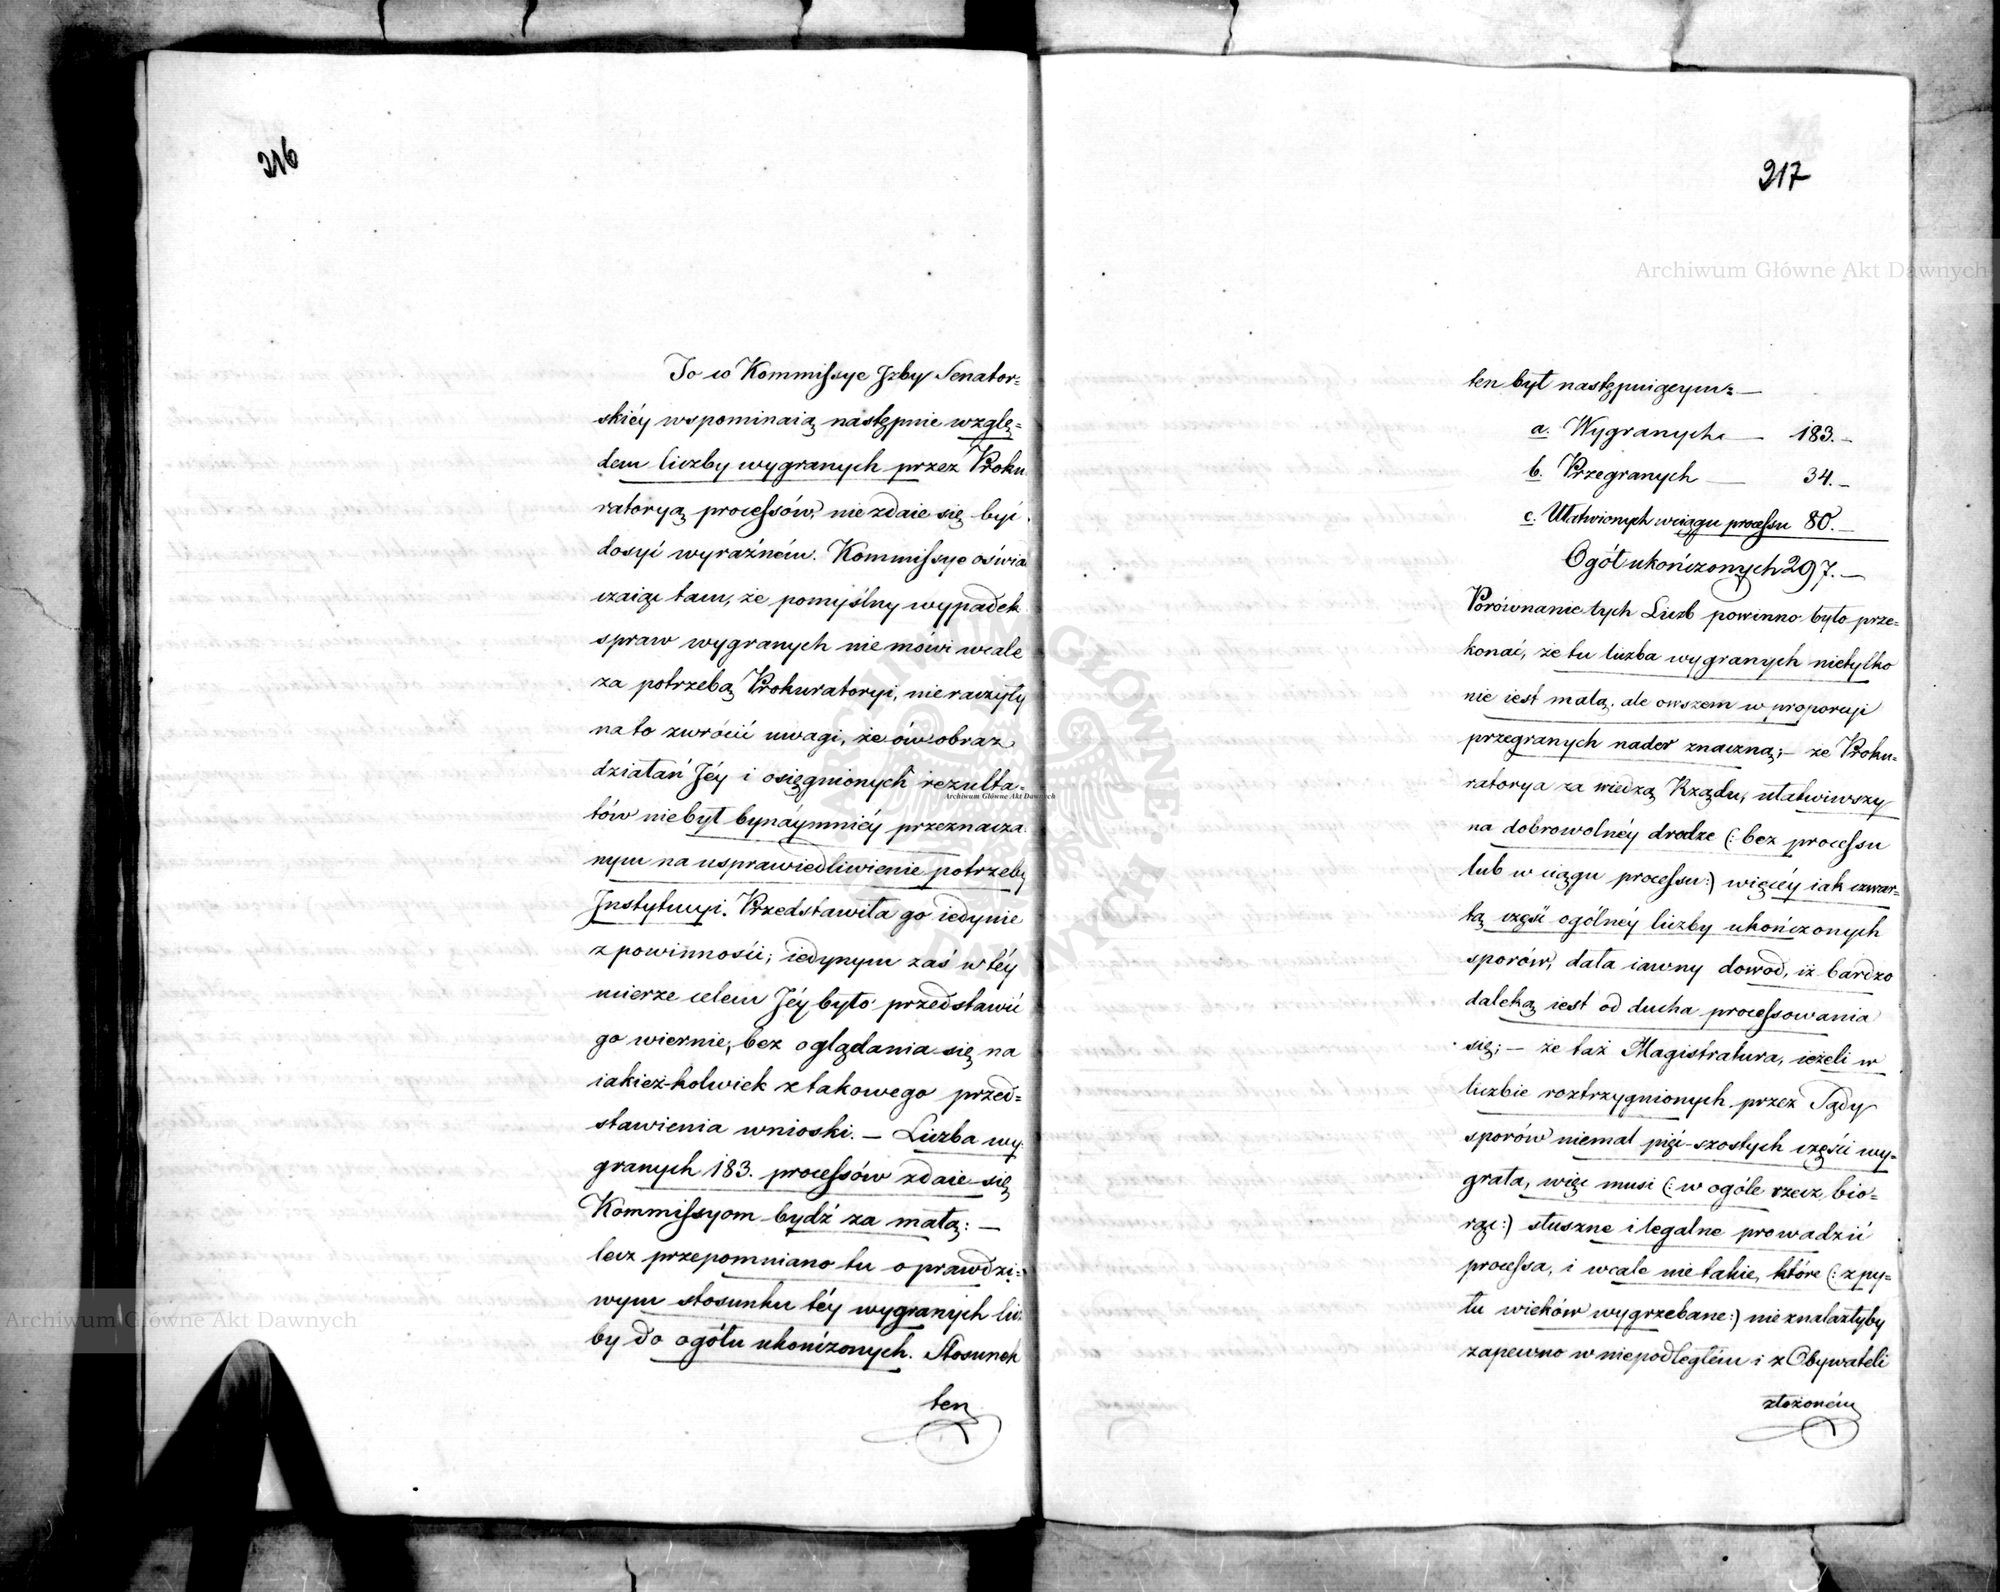 216
To co Kommissye Jzby Senator=
skiéy wspominaią następnie wzglę=
dem liczby wygranych przez Proku
ratoryą processów, nie zdaie się być
dosyć wyraźném. Kommissye oświad
czaiąc tam, że pomyślny wypadek
spraw wygranych nie mówi wcale
za potrzebą Prokuratoryi, nie raczyły
na to zwrócić uwagi, że ów obraz
działań Jéy i osięgnionych rezulta=
tów nie był bynaymniéy przeznacza
nym na usprawiedliwienie potrzeby
Jnstytucyi. Przedstawiła go iedynie
z powinności; iedynym zaś w téy
mierze celem Jéy było przedstawić
go wiernie, bez oglądania się na
iakież-kolwiek z takowego przed=
stawienia wnioski. — Liczba wy
granych 183. processów zdaie się
Kommissyom bydź za małą: —
lecz przepomniano tu o prawdzi=
wym stosunku téy wygranych licz
by do ogółu ukończonych. Stosunek
ten
217
ten był następuiącym: —
a. Wygranych — 183. —
b. Przegranych — 34. —
c. Ułatwionych w ciągu processu 80. —
Ogół ukończonych 297. —
Porównanie tych Liczb powinno było prze=
konać, że tu liczba wygranych nietylko
nie iest małą, ale owszem w proporcyi
przegranych nader znaczną; — że Proku=
ratorya za wiedzą Rządu, ułatwiwszy
na dobrowolnéy drodze (: bez processu
lub w ciągu processu :) więcéy iak czwar=
tą część ogólnéy liczby ukończonych
sporów, dała iawny dowód, iż bardzo
daleką iest od ducha processowania
się; — że taż Magistratura, ieżeli w
liczbie roztrzygnionych przez Sądy
sporów niemal pięć-szostych części wy=
grała, więc musi (: w ogóle rzecz bio=
rąc :) słuszne i legalne prowadzić
processa, i wcale nie takie, które (: z py=
łu wieków wygrzebane :) nie znalazłyby
zapewno w niepodległém i z Obywateli
złożoném
Archiwum Główne Akt Dawnych
Archiwum Główne Akt Dawnych
Archiwum Główne Akt Dawnych
ARCHIWUM GŁÓWNE AKT DAWNYCH